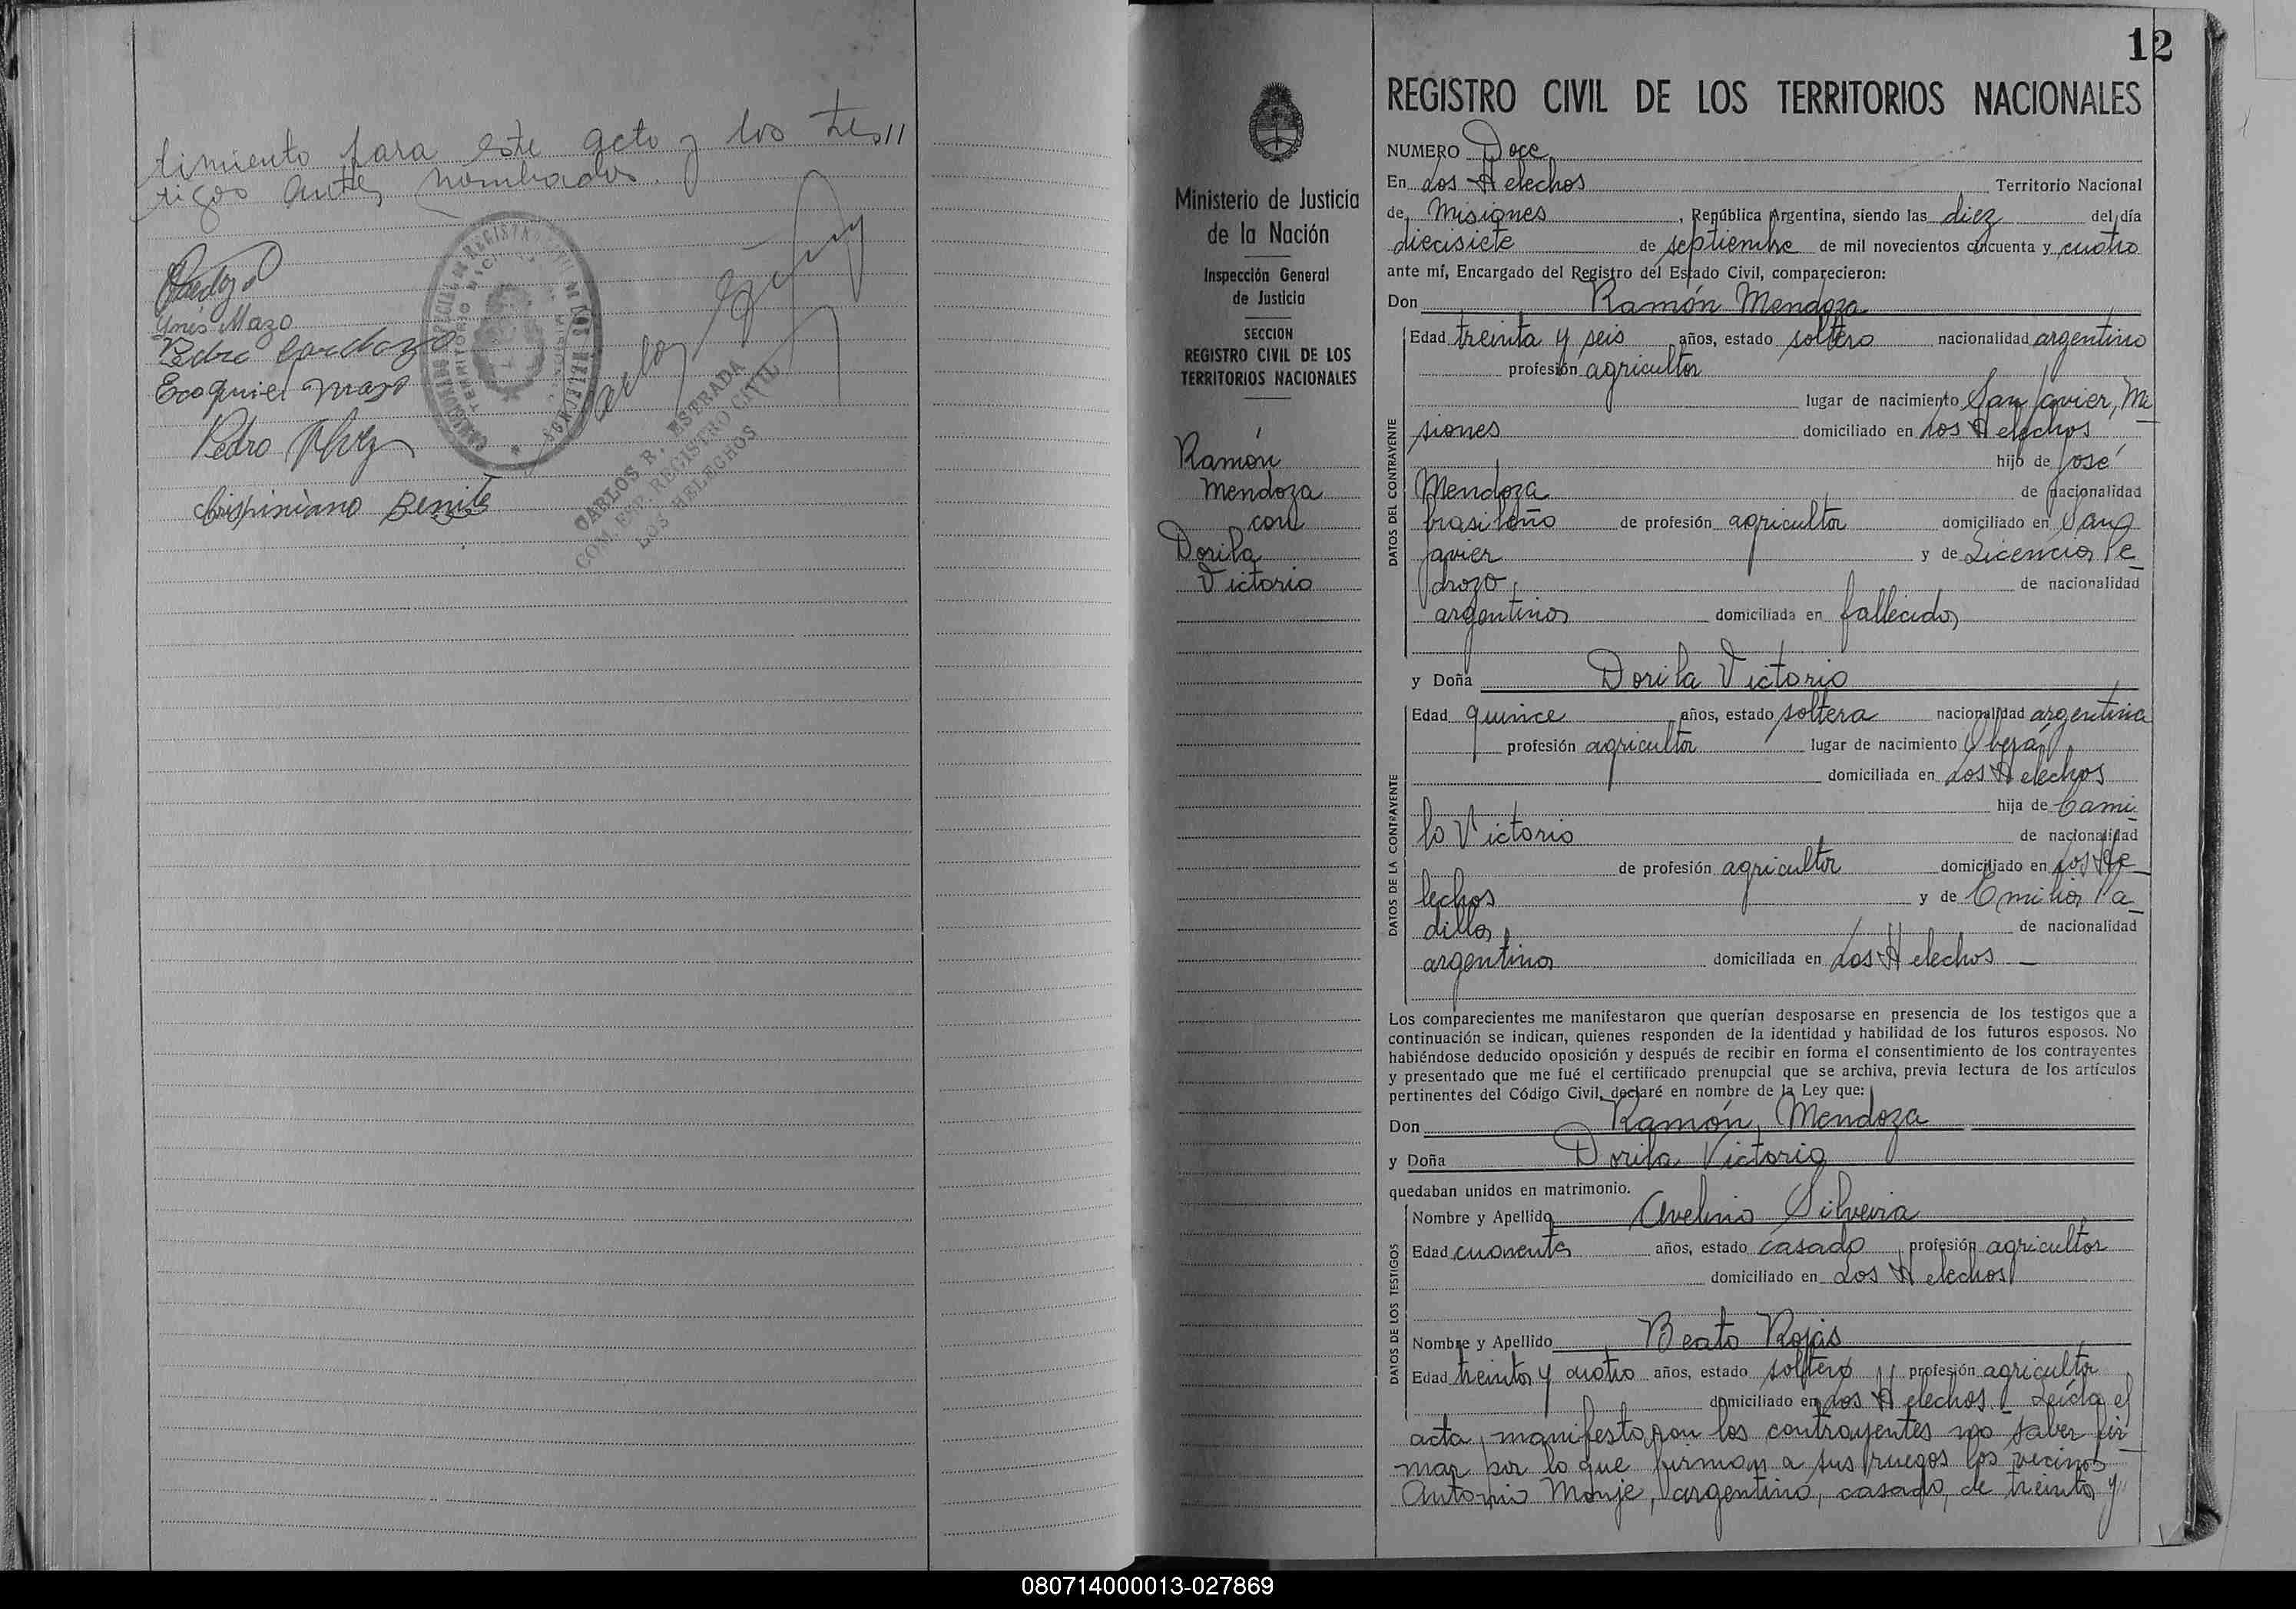 timiento para este acto y los tes//
tigos antes nombrados.
Ynés Mazo
Pedro Cardozo
Exequiel Mazo
Pedro
Crispiniano Benite
Carlos
CARLOS R. ESTRADA
COM. ESP. REGISTRO CIVIL
LOS HELECHOS
12
Ministerio de Justicia
de la Nación
Inspección General
de Justicia
SECCION
REGISTRO CIVIL DE LOS
TERRITORIOS NACIONALES
Ramón
Mendoza
con
Dorila
Victorio
REGISTRO CIVIL DE LOS TERRITORIOS NACIONALES
NUMERO Doce
En Los Helechos Territorio Nacional
de Misiones, República Argentina, siendo las diez del día
diecisiete de septiembre de mil novecientos cincuenta y cuatro
ante mí, Encargado del Registro del Estado Civil, comparecieron:
Don Ramón Mendoza
DATOS DEL CONTRAYENTE
Edad treinta y seis años, estado soltero nacionalidad argentino
profesión agricultor
lugar de nacimiento San Javier, Mi
siones domiciliado en Los Helechos
hijo de José
Mendoza de nacionalidad
brasileño de profesión agricultor domiciliado en San
Javier y de Licencia Pe
drozo de nacionalidad
argentina domiciliada en fallecida
y Doña Dorila Victorio
DATOS DE LA CONTRAYENTE
Edad quince años, estado soltera nacionalidad argentina
profesión agricultor lugar de nacimiento Oberá
domiciliada en Los Helechos
hija de Cami
lo Victorio de nacionalidad
de profesión agricultor domiciliado en Los He
lechos y de Emilia Pa
dilla de nacionalidad
argentina domiciliada en Los Helechos
Los comparecientes me manifestaron que querían desposarse en presencia de los testigos que a
continuación se indican, quienes responden de la identidad y habilidad de los futuros esposos. No
habiéndose deducido oposición y después de recibir en forma el consentimiento de los contrayentes
y presentado que me fué el certificado prenupcial que se archiva, previa lectura de los artículos
pertinentes del Código Civil, declaré en nombre de la Ley que:
Don Ramón Mendoza
y Doña Dorila Victorio
quedaban unidos en matrimonio.
DATOS DE LOS TESTIGOS
Nombre y Apellido Avelino Silveira
Edad cuarenta años, estado casado profesión agricultor
domiciliado en Los Helechos
Nombre y Apellido Beato Rojas
Edad treinta y cuatro años, estado soltero profesión agricultor
domiciliado en Los Helechos - Leída el
acta, manifestaron los contrayentes no saber fir
mar por lo que firman a sus ruegos los vecinos
Antonio Monje, argentino, casado, de treinta y
080714000013-027869